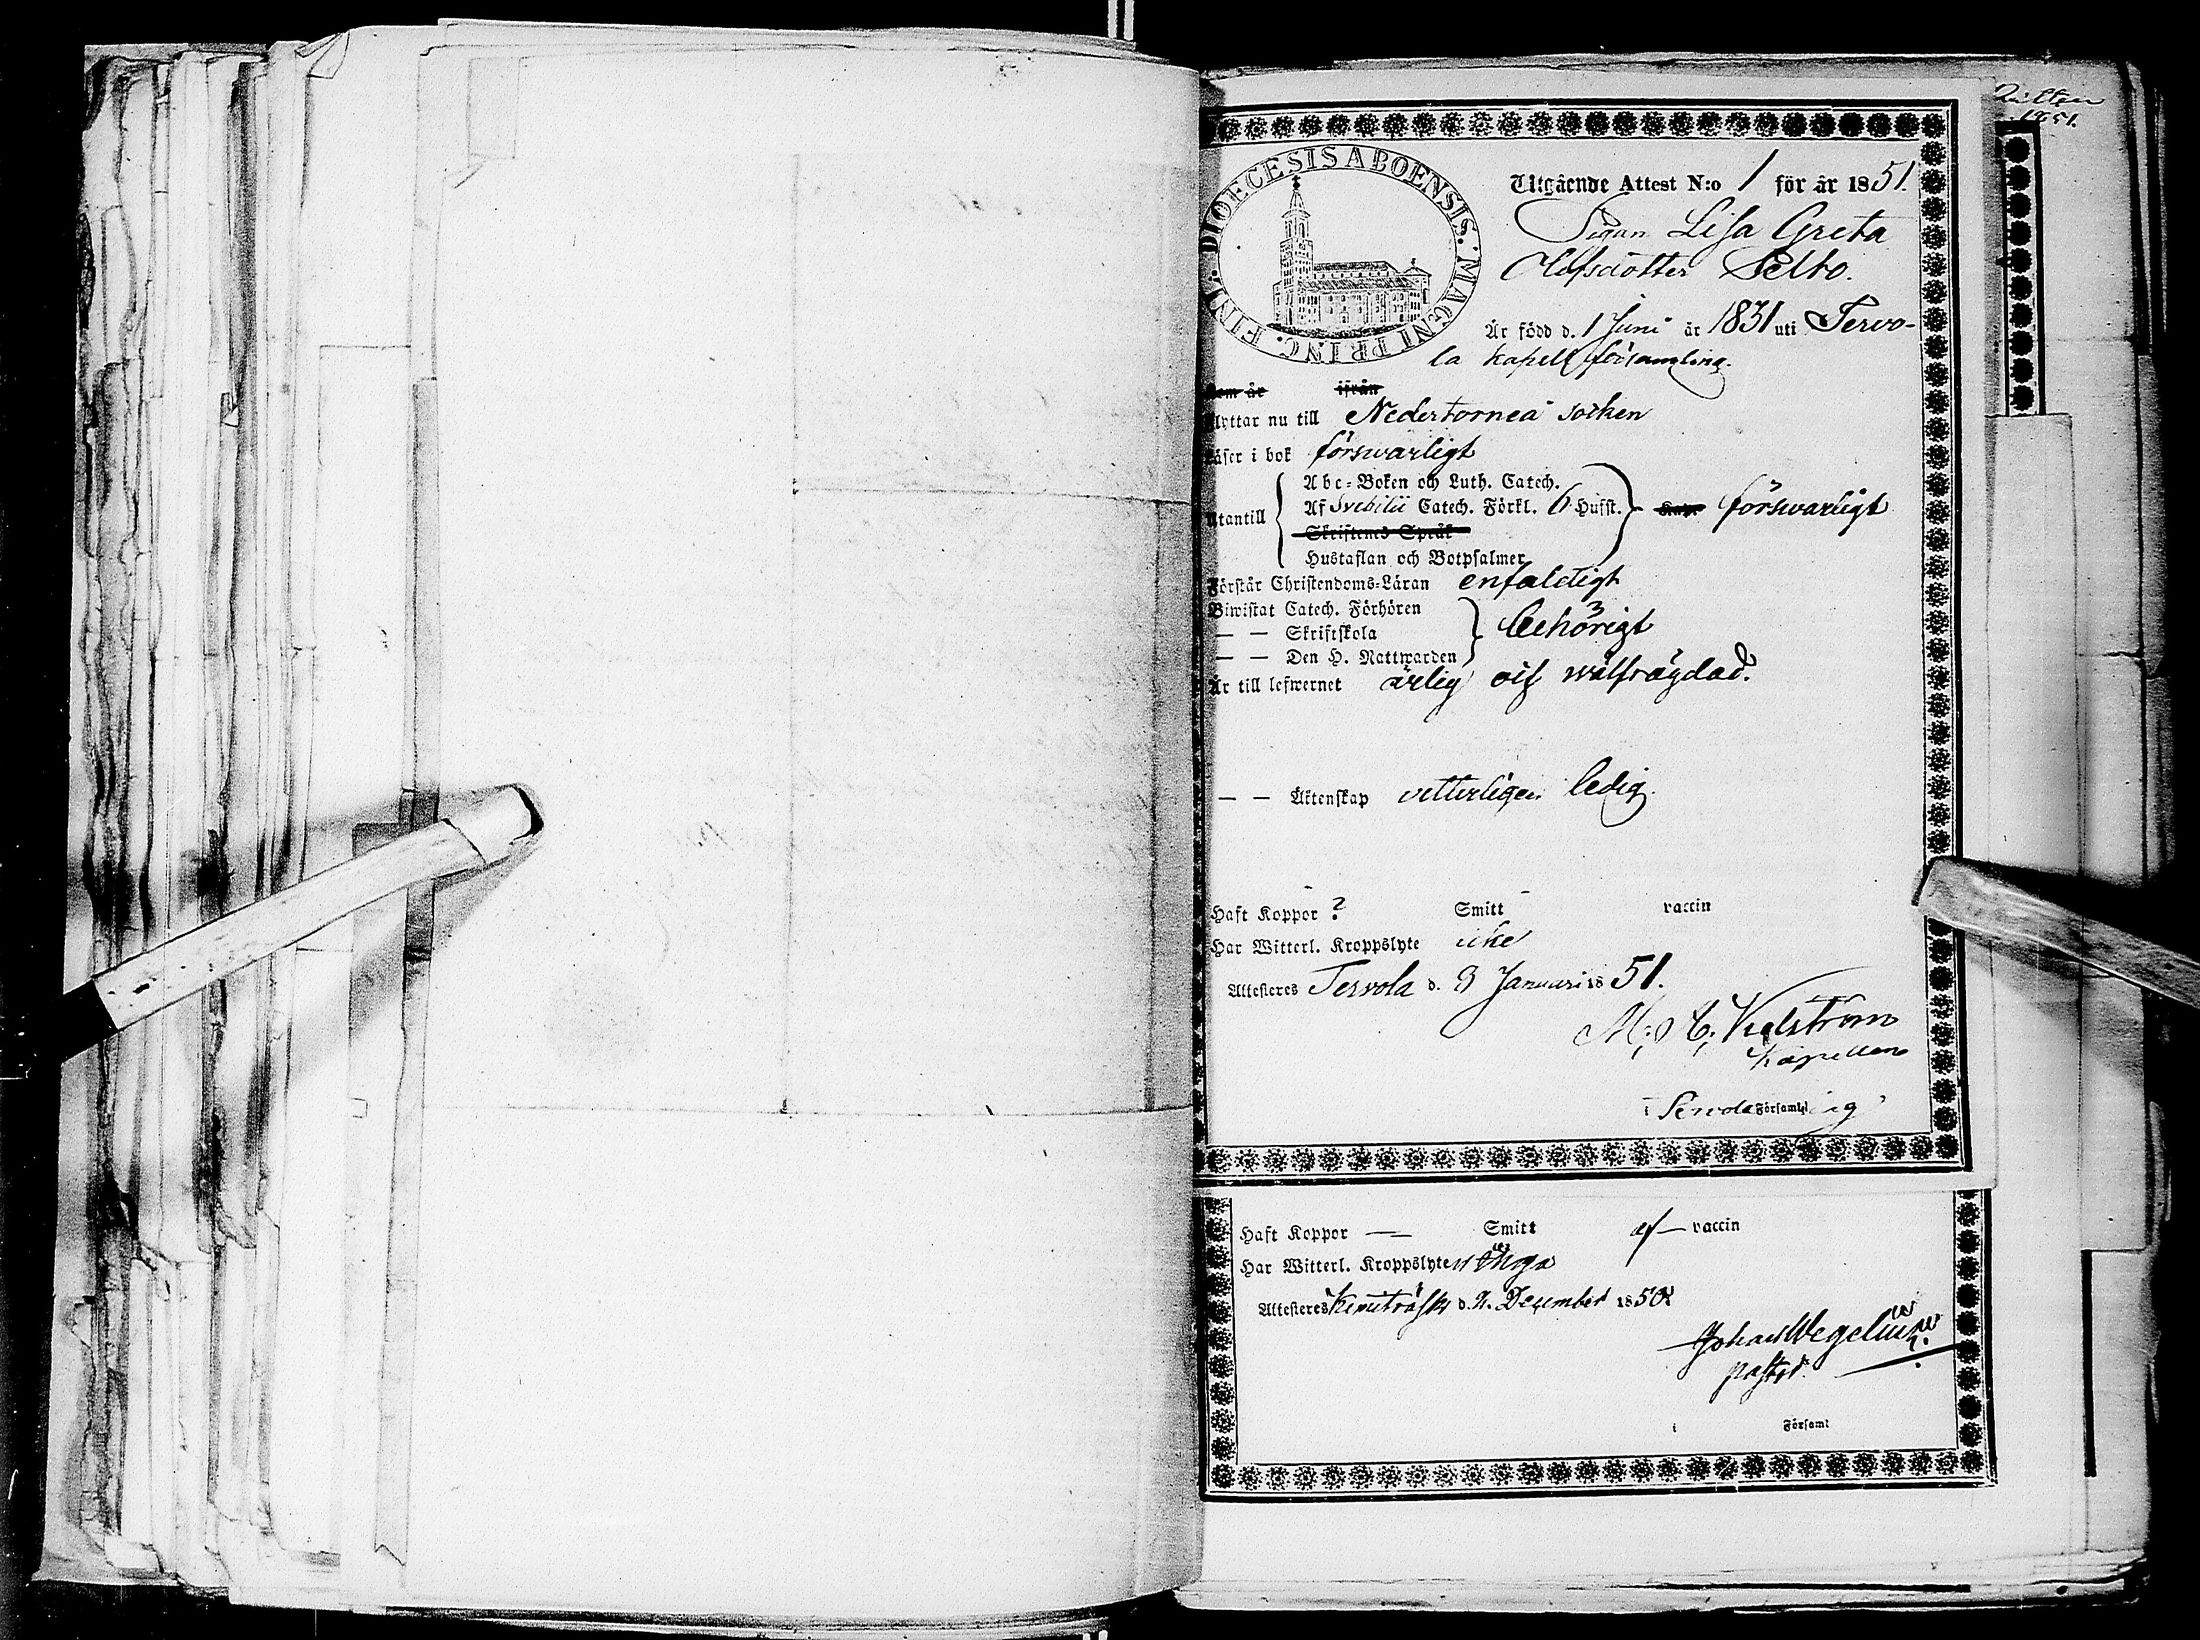 1851.
DIOECESIS ABOENSIS. MAGNI PRINC. FINL.
Utgående Attest N:o 1 för år 1851.
Pigan Lisa Greta
Olofsdotter Pelto.
Är född d. 1 Juni år 1831 uti Tervo-
la kapell församling.
Kom år ifrån
Flyttar nu till Nedertorneå socken
Läser i bok försvarligt
Abc-Boken och Luth. Catech.
Utantill Af Svebilii Catech. Förkl. 6 Hufst. försvarligt
Skriftenes Språk
Hustaflan och Botpsalmer
Förstår Christendoms-Läran enfaldigt
Biwistat Catech. Förhören
— — Skriftskola behörigt
— — Den H. Nattwarden
Är till lefwernet ärlig och wälfrägdad.
— — Äktenskap vetterligen ledig.
Haft Koppor ? Smitt vaccin
Har Witterl. Kroppslyte icke
Attesteras Tervola d. 3 Januari 1851.
Kapellan
i Tervola Församling
Haft Koppor — Smitt af vaccin
Har Witterl. Kroppslyten inga
Attesteras Kemiträsk d. 2. December 1850
Johan Wegelius
pastor.
i Församl